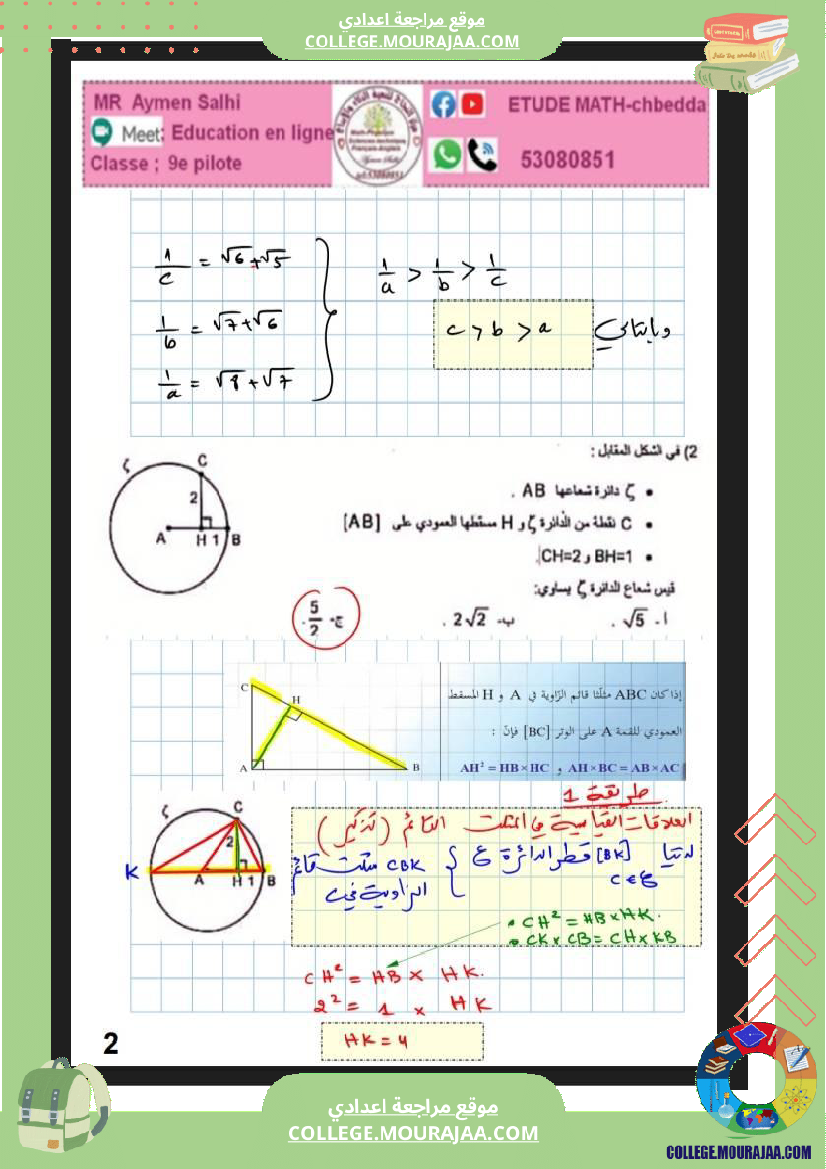 موقع مراجعة اعدادي
COLLEGE.MOURAJAA.COM
MR Aymen Salhi
Meet: Education en ligne
Classe ; 9e pilote
ETUDE MATH-chbedda
53080851
1/c = √6+√5
1/b = √7+√6
1/a = √8+√7
1/a > 1/b > 1/c
وبالتالي c > b > a
2) في الشكل المقابل :
• ζ دائرة شعاعها AB .
• C نقطة من الدائرة ζ و H مسقطها العمودي على [AB]
• BH=1 و CH=2.
قيس شعاع الدائرة ζ يساوي:
أ- √5 . ب- 2√2 . ج- 5/2 .
ζ C 2 A H 1 B
إذا كان ABC مثلّثا قائم الزّاوية في A و H المسقط
العمودي للقمة A على الوتر [BC] فإنّ :
AH² = HB × HC و AH × BC = AB × AC
C H A B
طريقة 1
العلاقات القياسية في المثلث القائم (تذكير)
لدينا [BK] قطر الدائرة ζ
C ∈ ζ
CBK مثلث قائم
الزاوية في C
• CH² = HB × HK.
• CK × CB = CH × KB
ζ C 2 K A H 1 B
CH² = HB × HK.
2² = 1 × HK
HK = 4
2
موقع مراجعة اعدادي
COLLEGE.MOURAJAA.COM
COLLEGE.MOURAJAA.COM